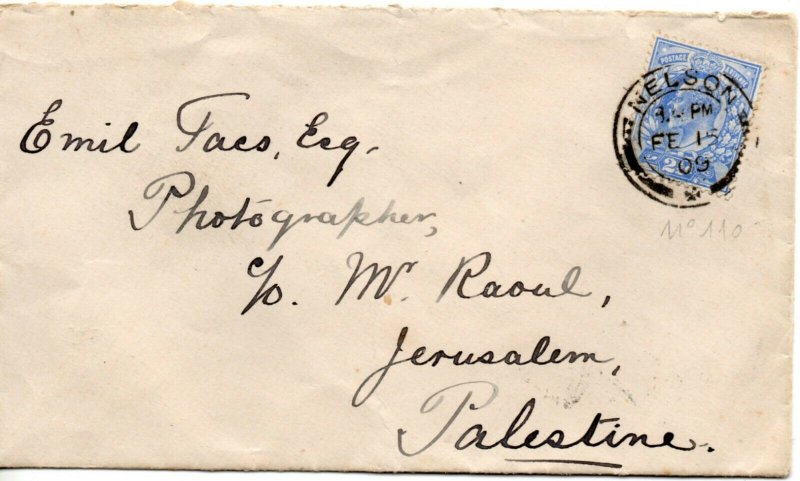 Emil Facs, Esq.
Photographer,
c/o. Mr. Raoul,
Jerusalem,
Palestine.
POSTAGE
NELSON
PM
FE 15
09
No 110